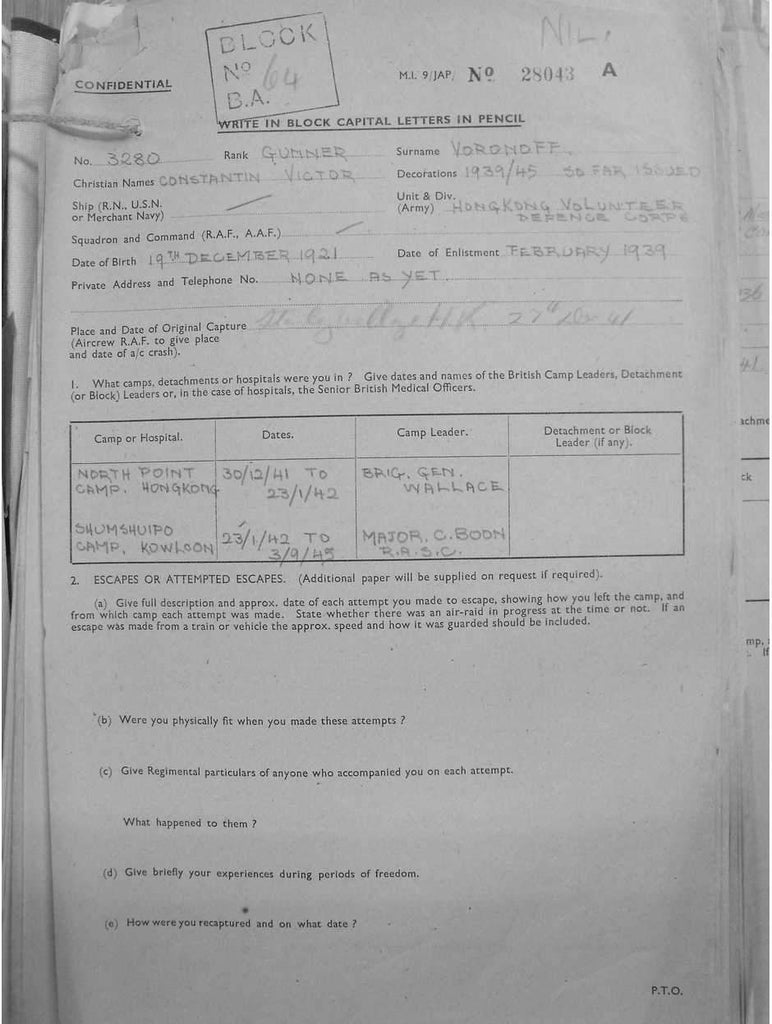 NIL.
BLOCK
Nº 64
B.A.
CONFIDENTIAL
M.I. 9/JAP/ Nº 28043 A
WRITE IN BLOCK CAPITAL LETTERS IN PENCIL
No. 3280 Rank GUNNER Surname VORONOFF
Christian Names CONSTANTIN VICTOR Decorations 1939/45 SO FAR ISSUED
Ship (R.N., U.S.N. or Merchant Navy)
Unit & Div. (Army) HONGKONG VOLUNTEER DEFENCE CORPS
Squadron and Command (R.A.F., A.A.F.)
Date of Birth 19TH DECEMBER 1921 Date of Enlistment FEBRUARY 1939
Private Address and Telephone No. NONE AS YET.
Place and Date of Original Capture Stanley Village H.K. 27th Dec 41
(Aircrew R.A.F. to give place
and date of a/c crash).
1. What camps, detachments or hospitals were you in ? Give dates and names of the British Camp Leaders, Detachment
(or Block) Leaders or, in the case of hospitals, the Senior British Medical Officers.
Camp or Hospital. Dates. Camp Leader. Detachment or Block Leader (if any).
NORTH POINT 30/12/41 TO BRIG. GEN.
CAMP. HONGKONG 23/1/42 WALLACE
SHUMSHUIPO 23/1/42 TO MAJOR. C. BOON
CAMP, KOWLOON 3/9/45 R.A.S.C.
2. ESCAPES OR ATTEMPTED ESCAPES. (Additional paper will be supplied on request if required).
(a) Give full description and approx. date of each attempt you made to escape, showing how you left the camp, and
from which camp each attempt was made. State whether there was an air-raid in progress at the time or not. If an
escape was made from a train or vehicle the approx. speed and how it was guarded should be included.
(b) Were you physically fit when you made these attempts ?
(c) Give Regimental particulars of anyone who accompanied you on each attempt.
What happened to them ?
(d) Give briefly your experiences during periods of freedom.
(e) How were you recaptured and on what date ?
P.T.O.